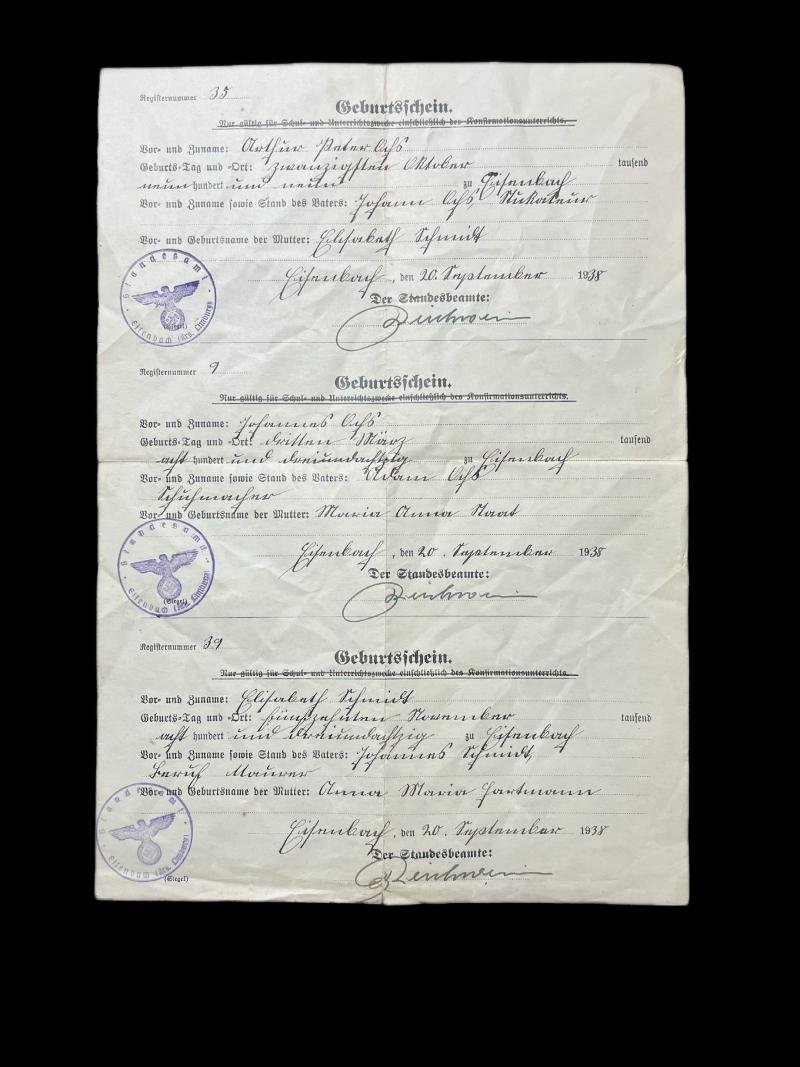 Registernummer 35
Geburtsschein.
Nur gültig für Schul- und Unterrichtszwecke einschließlich des Konfirmationsunterrichts.
Vor- und Zuname: Arthur Peter Ochs
Geburts-Tag und -Ort: zwanzigsten Oktober tausend
neun hundert und neun zu Eisenbach
Vor- und Zuname sowie Stand des Vaters: Johann Ochs, Stukateur
Vor- und Geburtsname der Mutter: Elisabeth Schmidt
Eisenbach, den 20. September 1938
Der Standesbeamte:
Standesamt
Eisenbach (Krs. Limburg)
(Siegel)
Registernummer 9
Geburtsschein.
Nur gültig für Schul- und Unterrichtszwecke einschließlich des Konfirmationsunterrichts.
Vor- und Zuname: Johannes Ochs
Geburts-Tag und -Ort: dritten März tausend
acht hundert und dreiundachtzig zu Eisenbach
Vor- und Zuname sowie Stand des Vaters: Adam Ochs
Schuhmacher
Vor- und Geburtsname der Mutter: Maria Anna Staat
Eisenbach, den 20. September 1938
Der Standesbeamte:
Standesamt
Eisenbach (Krs. Limburg)
(Siegel)
Registernummer 39
Geburtsschein.
Nur gültig für Schul- und Unterrichtszwecke einschließlich des Konfirmationsunterrichts.
Vor- und Zuname: Elisabeth Schmidt
Geburts-Tag und -Ort: fünfzehnten November tausend
acht hundert und dreiundachtzig zu Eisenbach
Vor- und Zuname sowie Stand des Vaters: Johannes Schmidt,
Beruf Maurer
Vor- und Geburtsname der Mutter: Anna Maria Hartmann
Eisenbach, den 20. September 1938
Der Standesbeamte:
Standesamt
Eisenbach (Krs. Limburg)
(Siegel)